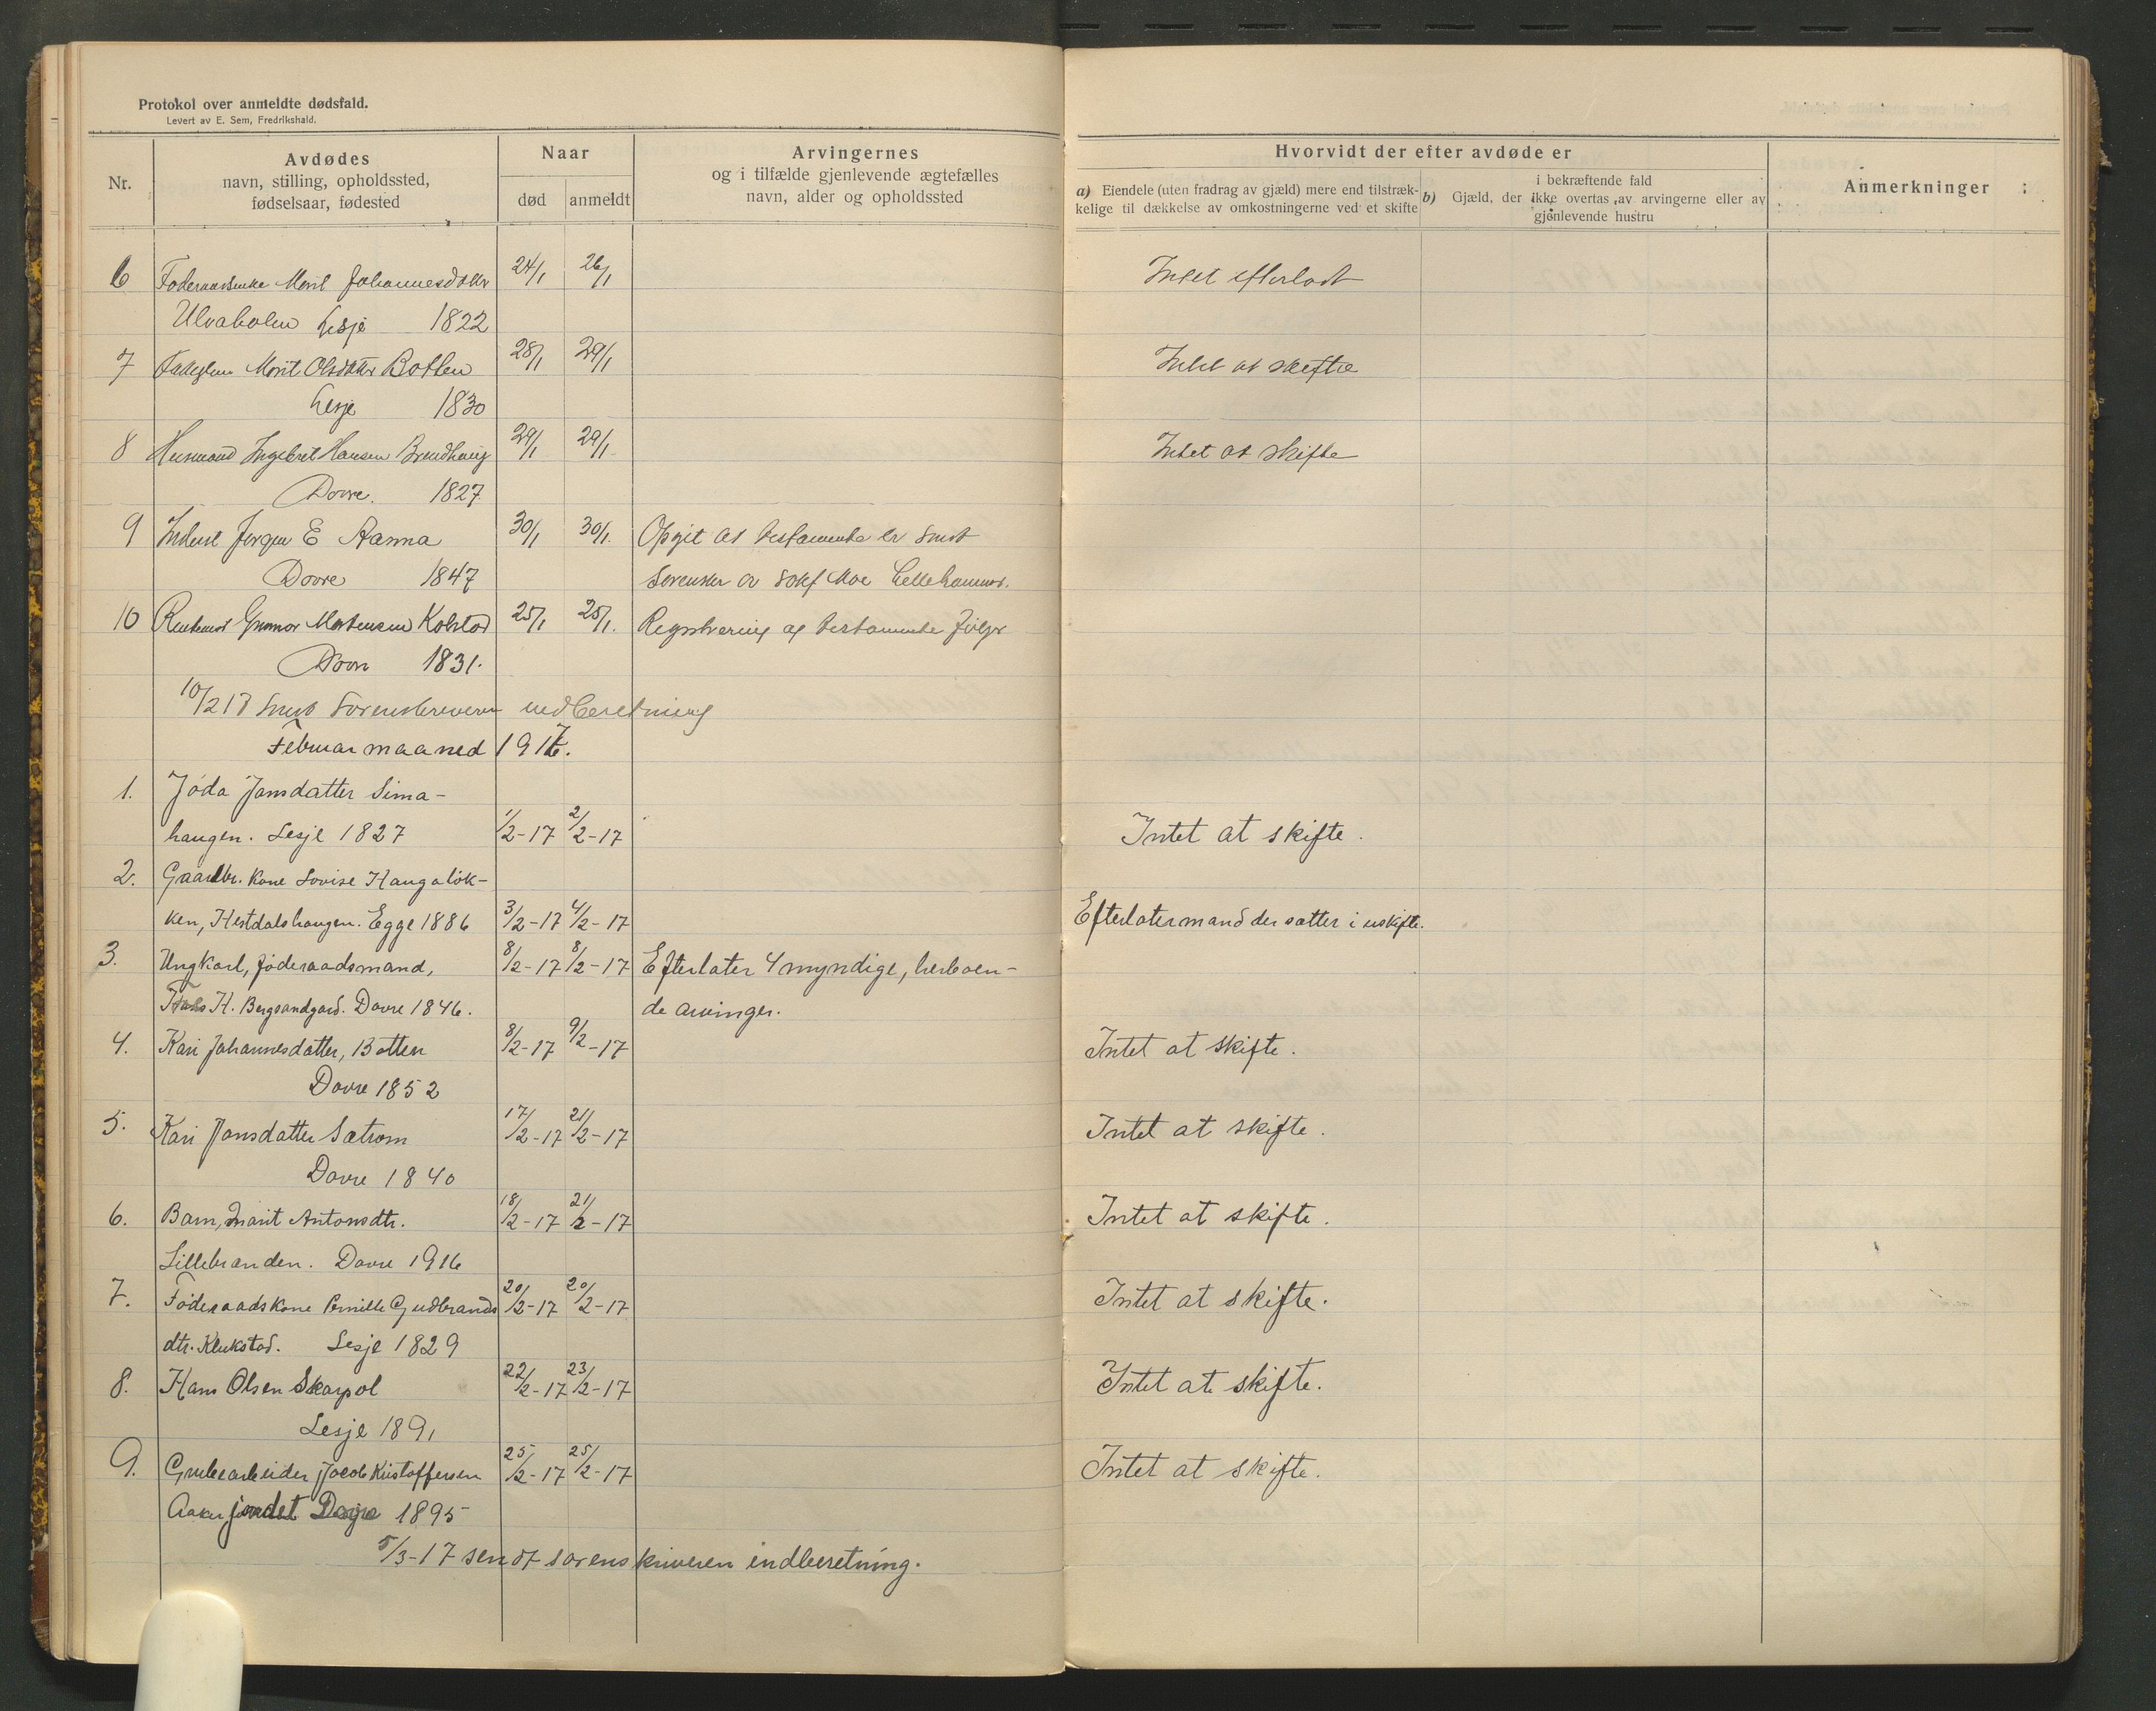 Protokol over anmeldte dødsfald.
Levert av E. Sem, Fredrikshald.
Nr.
Avdødes
navn, stilling, opholdssted,
fødselsaar, fødested
Naar
død anmeldt
Arvingernes
og i tilfælde gjenlevende ægtefælles
navn, alder og opholdssted
Hvorvidt der efter avdøde er
a) Eiendele (uten fradrag av gjæld) mere end tilstræk-
kelige til dækkelse av omkostningerne ved et skifte
i bekræftende fald
b) Gjæld, der ikke overtas av arvingerne eller av
gjenlevende hustru
Anmerkninger
6 Føderaadsenke Marit Johannesdatter 24/1 26/1 Intet efterladt
Ulvabolen Lesje 1822
7 Marit Olsdatter Botten 28/1 29/1 Intet at skifte
Lesje 1830
8 Husmand Ingebret Hansen Brendhaug 29/1 29/1 Intet at skifte
Dovre. 1827
9 Inderst Jørgen E Ranna 30/1 30/1. Opgit at testamente er sendt
Dovre 1847
10 Gunnar Mortensen Kolstad 25/1 25/1. Registrering og testamente følger
Dovre 1831.
10/2 17 sendt sorenskriveren indberetning
Februar maaned 1917.
1. Jøda Jansdatter Sima-
haugen. Lesje 1827 1/2-17 2/2-17 Intet at skifte.
2. Gaardbr. kone Lovise Haugaløk-
ken, Hestdalshaugen. Egge 1886 3/2-17 4/2-17 Efterlater mand der sætter i uskifte.
3. Ungkarl, føderaadsmand, 8/2-17 8/2-17 Efterlater 4 myndige, herboen-
H. Bergsandgard. Dovre 1846. de arvinger.
4. Kari Johannesdatter, Botten 8/2-17 9/2-17 Intet at skifte.
Dovre 1852
5. Kari Jansdatter Sætrom 17/2-17 21/2-17 Intet at skifte.
Dovre 1840
6. Barn, Marit Antonsdtr. 18/2-17 21/2-17 Intet at skifte.
Lillebranden. Dovre 1916
7. Føderaadskone Pernille Gudbrands 20/2-17 20/2-17 Intet at skifte.
dtr. Klukstad. Lesje 1829
8. Hans Olsen Skarpol 22/2-17 23/2-17 Intet at skifte.
Lesje 1891
9. Grubearbeider Jacob Kristoffersen 25/2-17 25/2-17 Intet at skifte.
Aakerjordet 1895
5/3-17 sendt sorenskriveren indberetning.